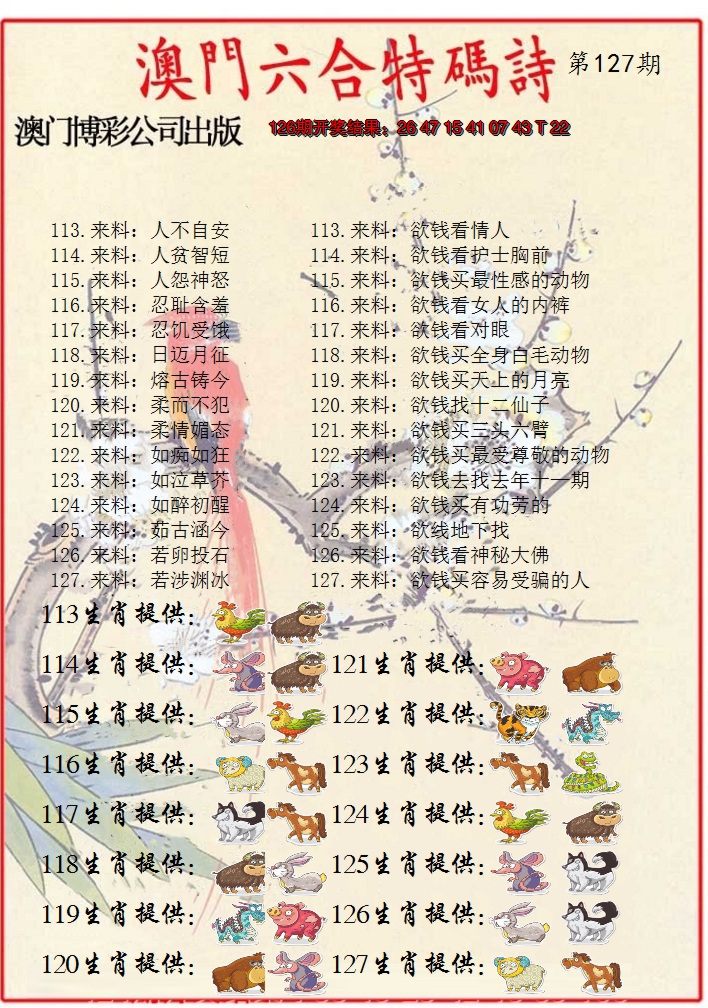 澳門六合特碼詩 第127期
澳门博彩公司出版 126期开奖结果：26 47 15 41 07 43 T 22
113.来料：人不自安 113.来料：欲钱看情人
114.来料：人贫智短 114.来料：欲钱看护士胸前
115.来料：人怨神怒 115.来料：欲钱买最性感的动物
116.来料：忍耻含羞 116.来料：欲钱看女人的内裤
117.来料：忍饥受饿 117.来料：欲钱看对眼
118.来料：日迈月征 118.来料：欲钱买全身白毛动物
119.来料：熔古铸今 119.来料：欲钱买天上的月亮
120.来料：柔而不犯 120.来料：欲钱找十二仙子
121.来料：柔情媚态 121.来料：欲钱买三头六臂
122.来料：如痴如狂 122.来料：欲钱买最受尊敬的动物
123.来料：如泣草芥 123.来料：欲钱去找去年十一期
124.来料：如醉初醒 124.来料：欲钱买有功劳的
125.来料：茹古涵今 125.来料：欲线地下找
126.来料：若卵投石 126.来料：欲钱看神秘大佛
127.来料：若涉渊冰 127.来料：欲钱买容易受骗的人
113生肖提供：
114生肖提供： 121生肖提供：
115生肖提供： 122生肖提供：
116生肖提供： 123生肖提供：
117生肖提供： 124生肖提供：
118生肖提供： 125生肖提供：
119生肖提供： 126生肖提供：
120生肖提供： 127生肖提供：